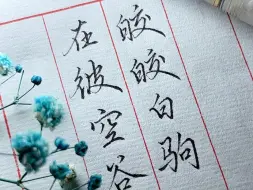 皎皎白驹
在彼空谷